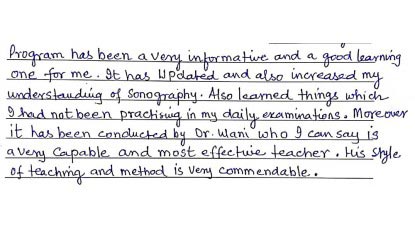 Program has been a very informative and a good learning
one for me. It has Updated and also increased my
understanding of Sonography. Also learned things which
I had not been practising in my daily examinations. Moreover
it has been conducted by Dr. Wani who I can say is
a very Capable and most effective teacher. His style
of teaching and method is very commendable.